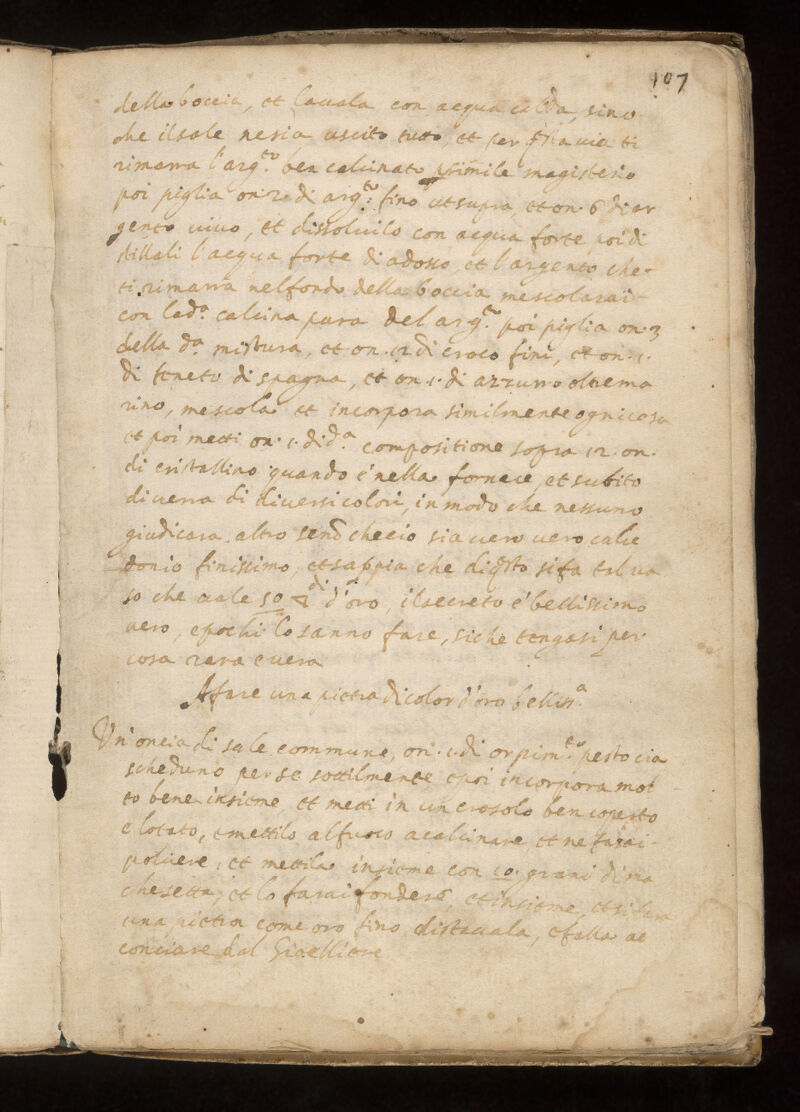 107
della boccia, et lavala con acqua calda, sino
che il sale ne sia uscito tutto, et per q.sta via ti
rimarra l'arg.to ben calcinato simile magisterio
poi piglia on. 2. di arg.to fino ut supra, et on. 6 di ar
gento vivo, et dissolvilo con acqua forte, poi di
stillali l'acqua forte di adosso, et l'argento che
ti rimarra nel fondo della boccia mescolarai
con la d.a calcina pura del arg.to poi piglia on. 3
della d.a mistura, et on. 12 di croco fini, et on. 1.
di feneto di spagna, et on. 1. di azzurro oltrema
rino, mescola et incorpora similmente ogni cosa
et poi metti on. 1. di d.a compositione sopra 12. on.
di cristallino quando é nella fornace, et subito
diverra di diversi colori, in modo che nessuno
giudicara altro senō che cio sia vero vero calce
donio finissimo, et sappia che di q̄sto si fa tal va
so che vale 50 di d'oro, il secreto é bellissimo
vero, e pochi lo sanno fare, siche tengasi per
cosa rara e vera
A fare una pietra di color d'oro belliss.a
Un' oncia di sale commune, on. 1. di orpim.to pesto cia
scheduno per se sottilmente e poi incorpora mol
to bene insieme, et metti in un crosolo ben coperto
e lotato, e mettilo al fuoco a calcinare et ne farai
polvere, et mettila insieme con 10. grani di ma
chesetta, et lo farai fondere, et insieme, et si fara
una pietra come oro fino, distacala, e falla ac
conciare dal Gioelliere